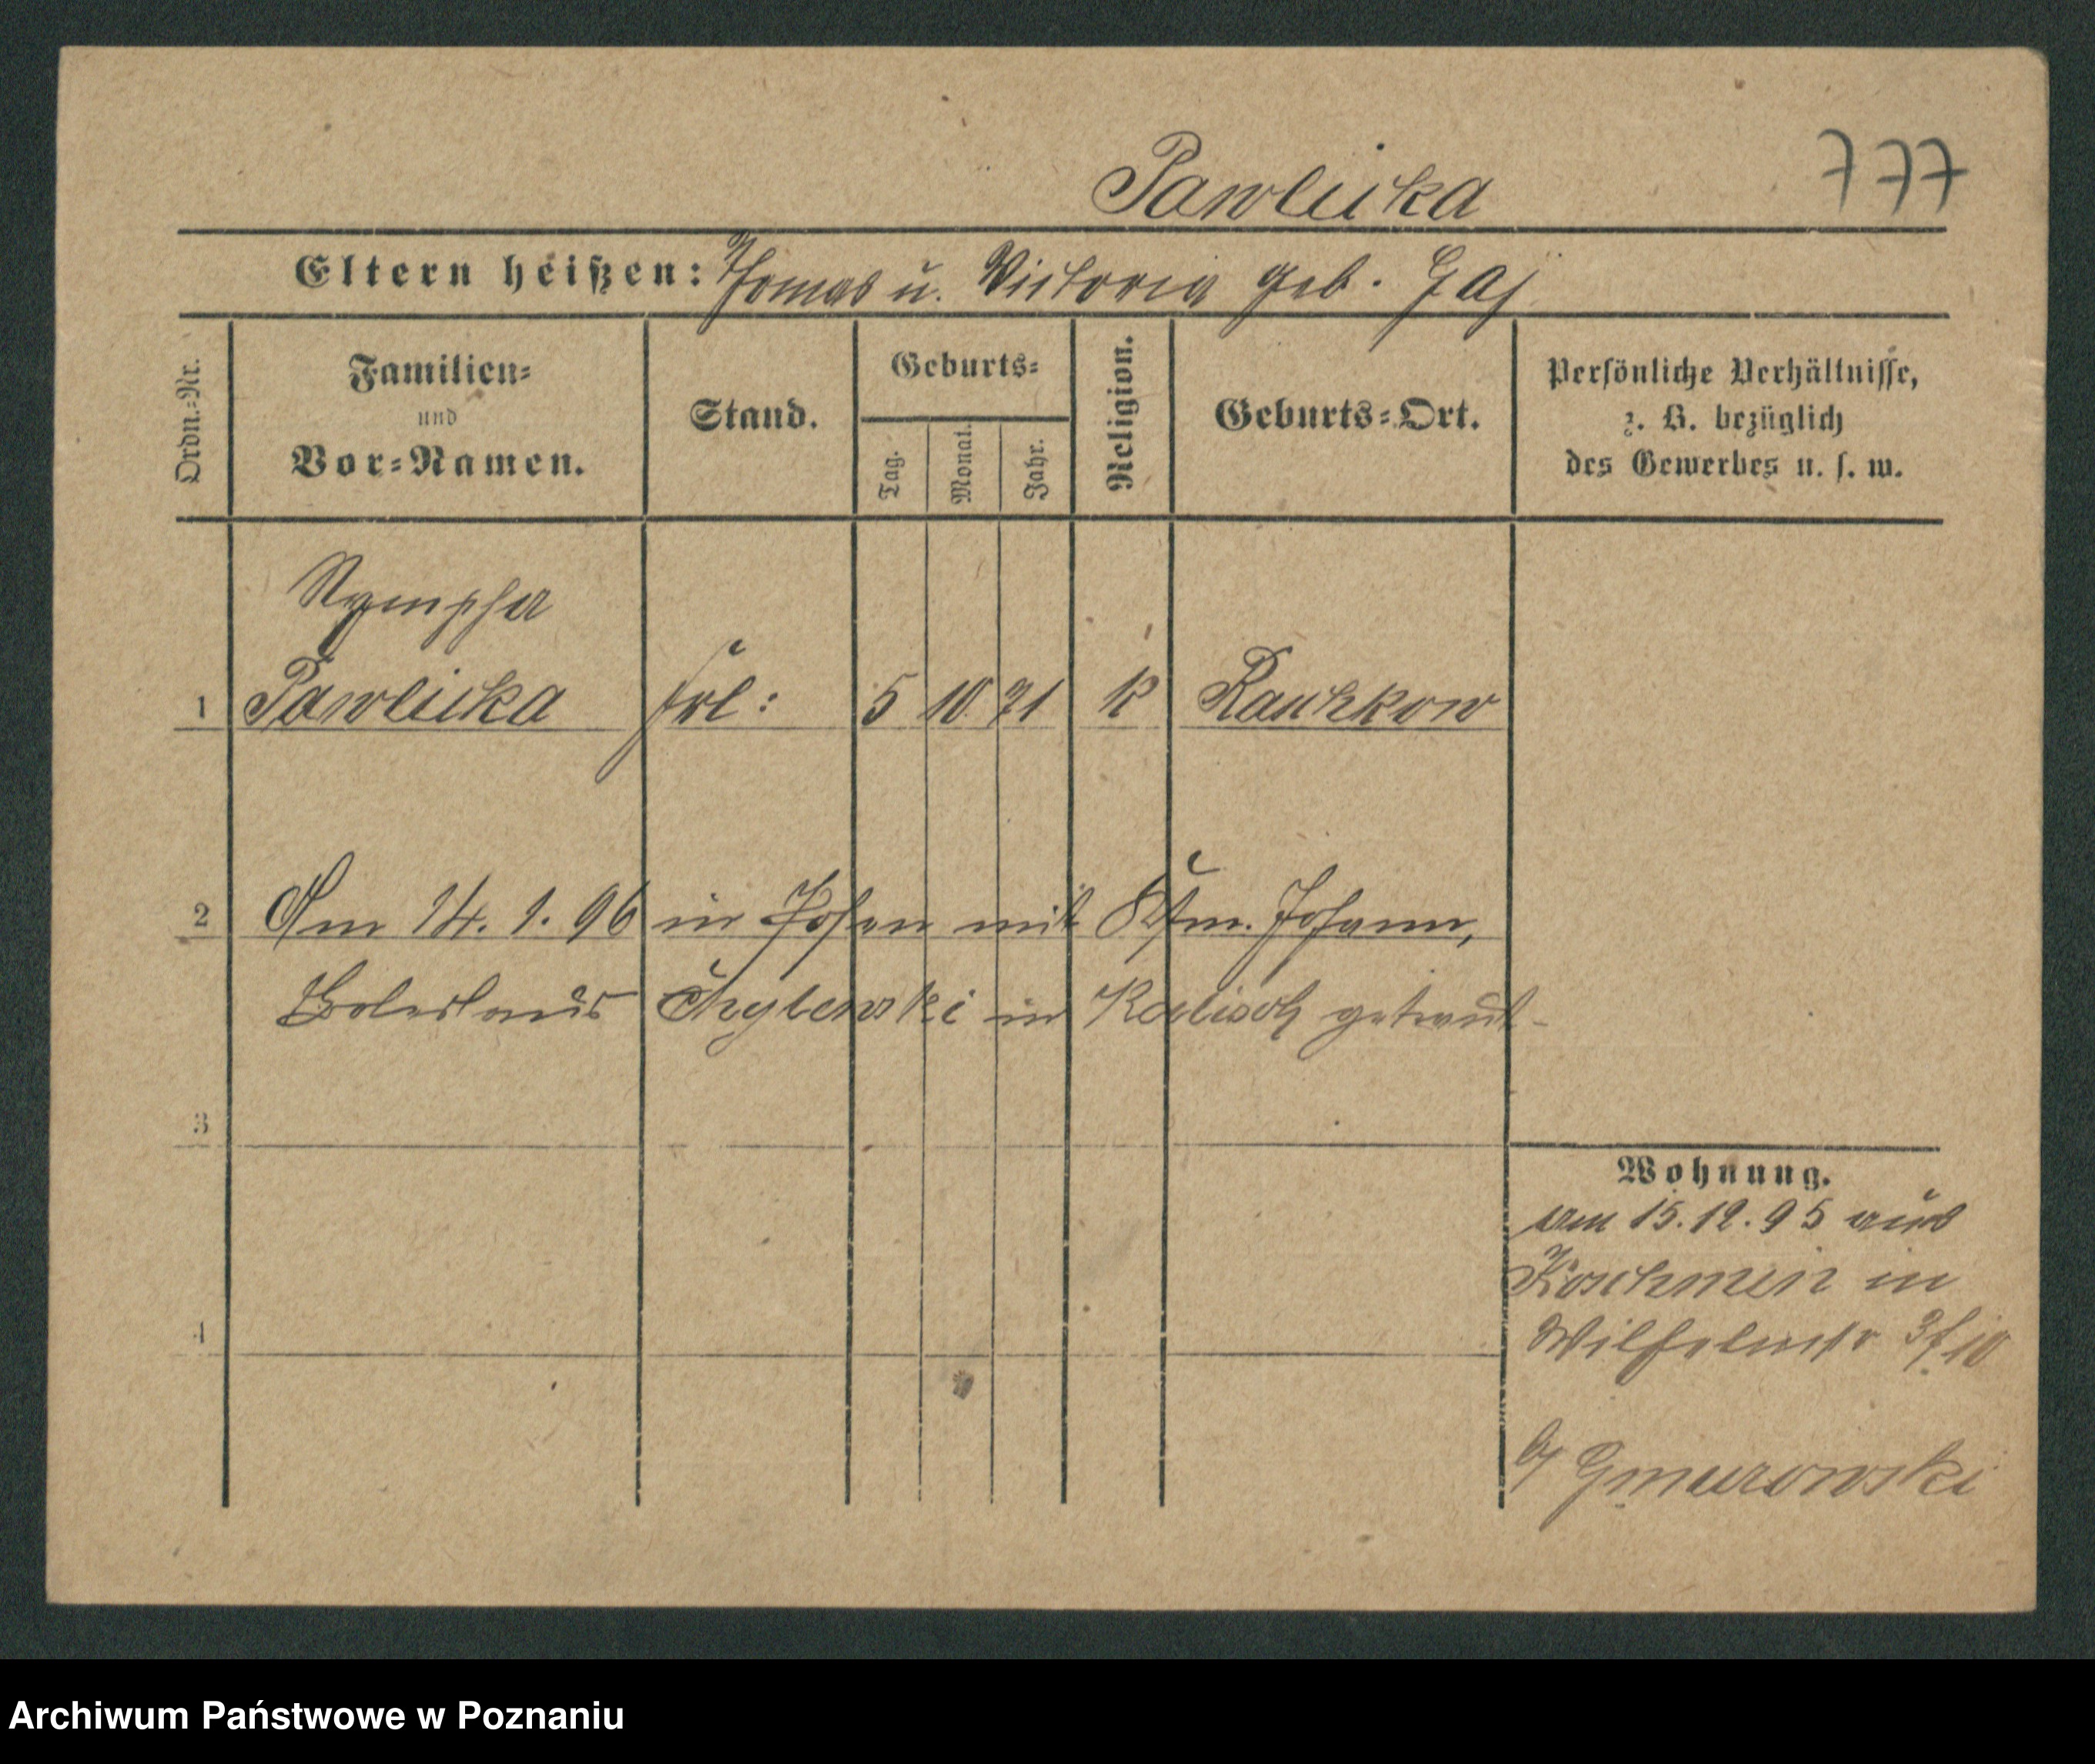 Pawlicka
777
Eltern heißen: Thomas u. Victoria geb. Gaj
Ordn.-Nr.
Familien-
und
Vor-Namen.
Stand.
Geburts-
Tag.
Monat.
Jahr.
Religion.
Geburts-Ort.
Persönliche Verhältnisse,
z. B. bezüglich
des Gewerbes u. s. w.
Nympha
1 Pawlicka Frl: 5 10 71 k Raschkow
2 Am 14. 1. 96 in Posen mit Kfm. Johann,
Boleslaus Chylewski in Kalisch getraut
3
4
Wohnung.
am 15.12.95 aus
Koschmin in
Wilhelmstr
b/ Gmurowski
Archiwum Państwowe w Poznaniu